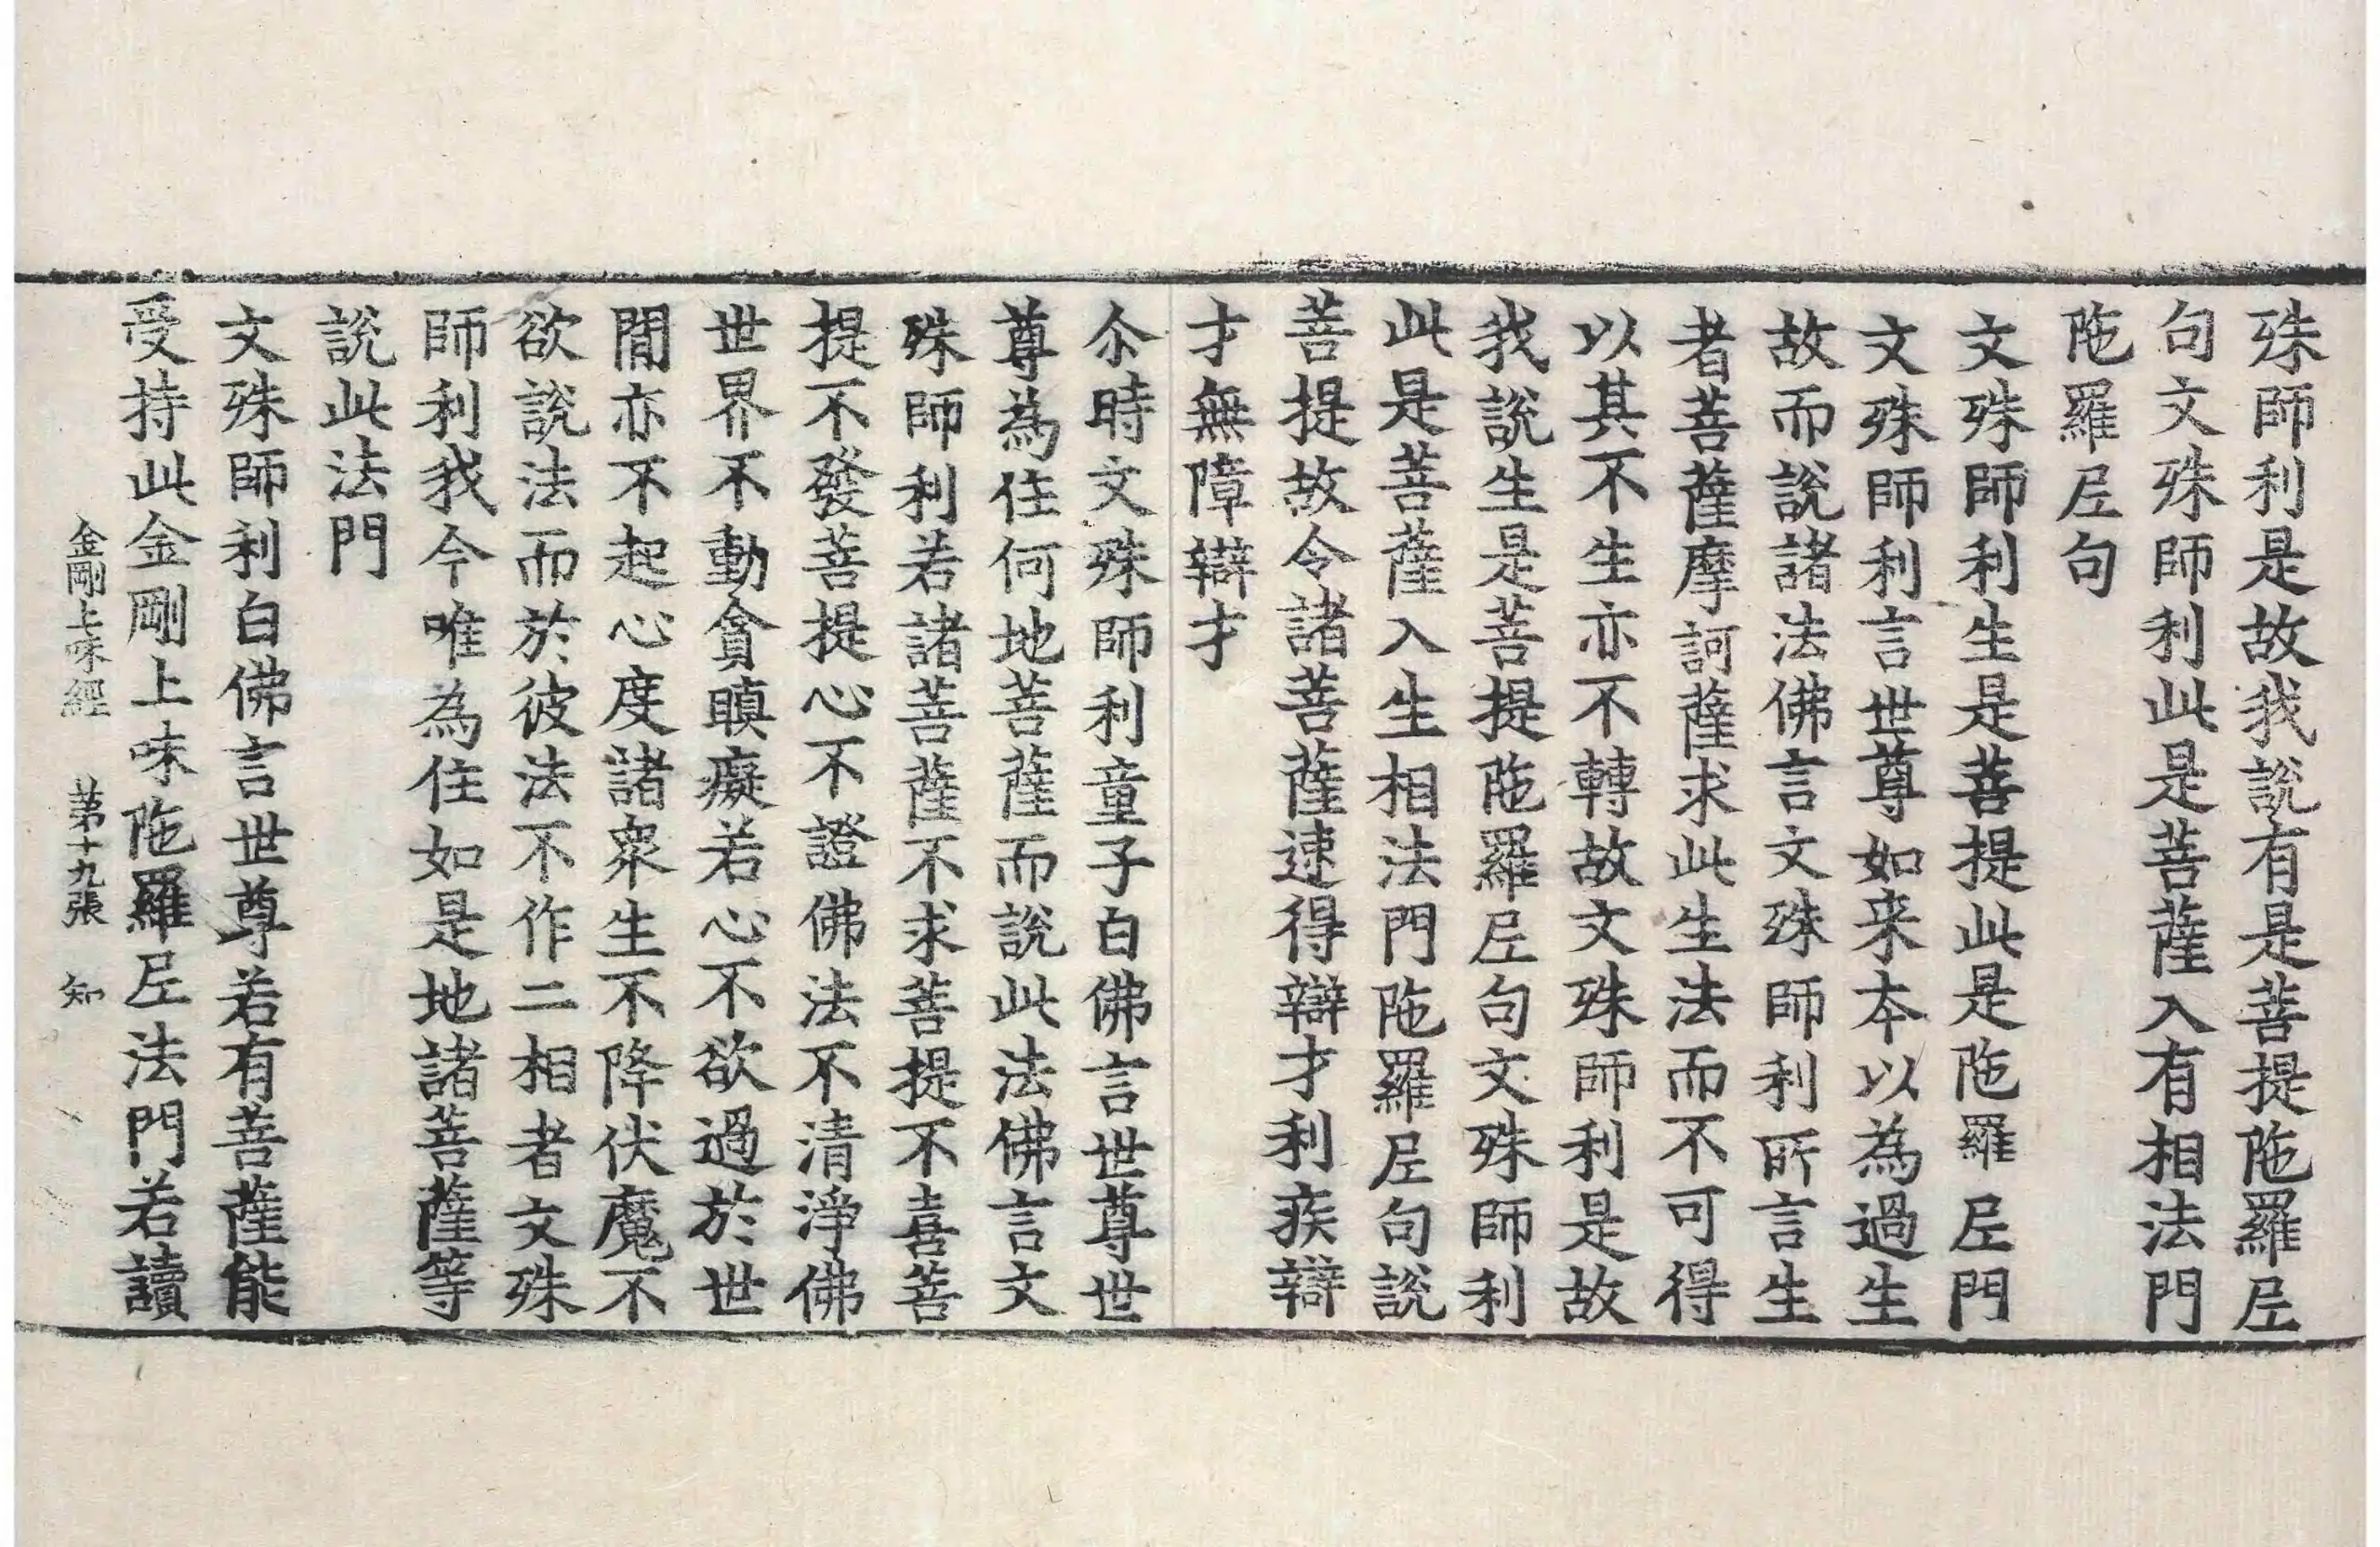 殊師利是故我說有是菩提陁羅𡰱
句文殊師利此是菩薩入有相法門
陁羅𡰱句
文殊師利生是菩提此是陁羅𡰱門
文殊師利言世尊如来本以為過生
故而說諸法佛言文殊師利所言生
者菩薩摩訶薩求此生法而不可得
以其不生亦不轉故文殊師利是故
我說生是菩提陁羅𡰱句文殊師利
此是菩薩入生相法門陁羅𡰱句說
菩提故令諸菩薩速得辯才利疾辯
才無障辯才
尒時文殊師利童子白佛言世尊世
尊為住何地菩薩而說此法佛言文
殊師利若諸菩薩不求菩提不喜菩
提不發菩提心不證佛法不清淨佛
世界不動貪瞋癡若心不欲過於世
閒亦不起心度諸衆生不降伏魔不
欲說法而於彼法不作二相者文殊
師利我今唯為住如是地諸菩薩等
說此法門
文殊師利白佛言世尊若有菩薩能
受持此金剛上味陁羅𡰱法門若讀
金剛上味經 第十九張 知